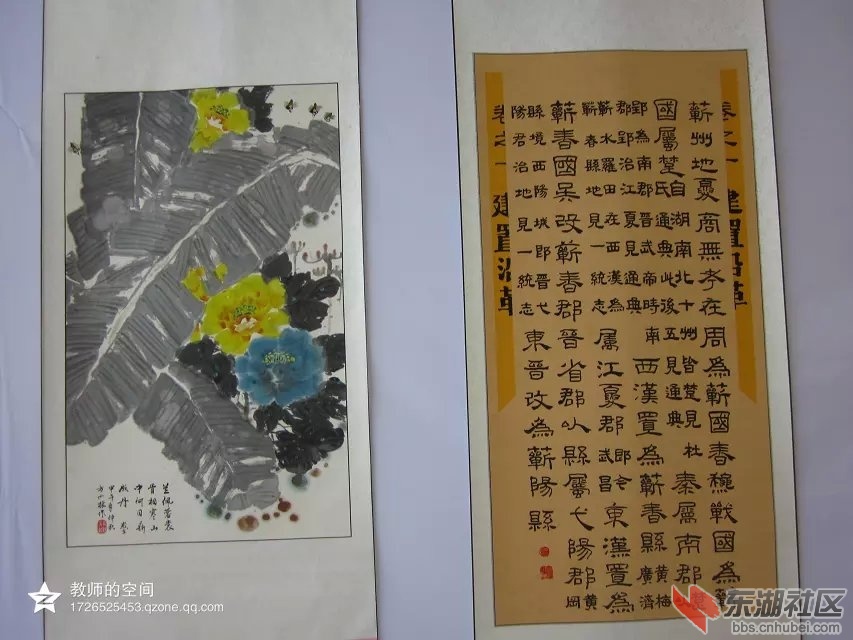 蘄州地夏商無考在周為蘄國春穐戰國為蘄
國屬楚
自湖南北十州皆楚見杜
氏通典此後五見通典
秦屬南郡
郢為南郡晉武帝時南
郡郢治江夏見通典
西漢置為蘄春縣
黃梅
廣濟
蘄水羅田在西漢為
蘄春縣地見一統志
屬江夏郡
郎今
武昌
東漢置為
蘄春國吳改蘄春郡晉省郡以縣屬弋陽郡
黃
岡
縣境西陽城即晉弋
陽君治地見一統志
東晉改為蘄陽縣
卷之一 建置沿革
卷之一 建置沿革
骨相寒山
中何日新
甲午年仲秋
教师的空间
1726525453.qzone.qq.com
东湖社区
bbs.cnhubei.com